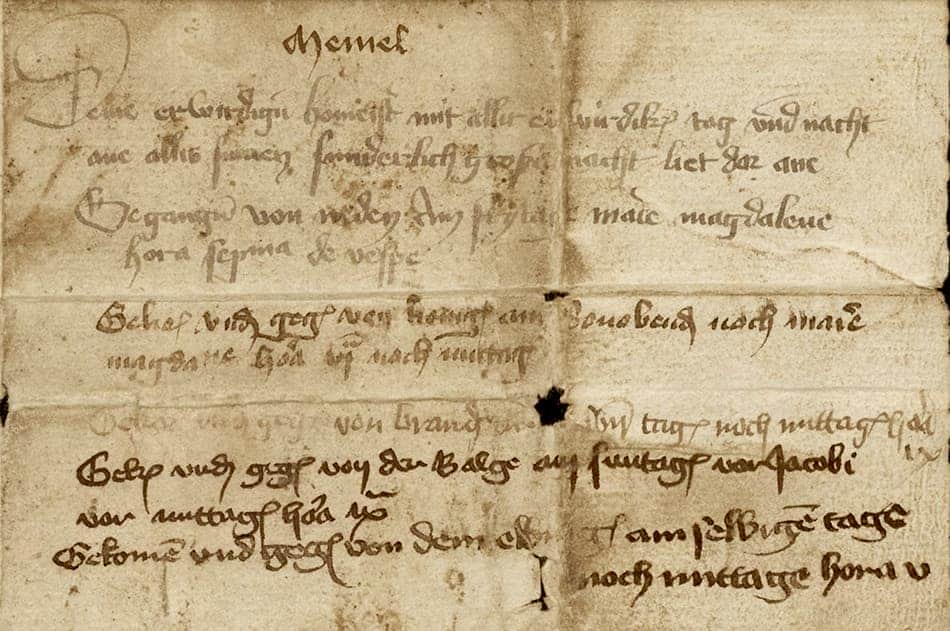 Memel
Deme erwirdigen homeistr mit aller erwirdikeit tag vnd nacht
ane allis sumen sunderlich grose macht liet dar ane
Gegangen von neden am frytage marie magdalene
hora septima de vespe
Gekomen vnd geg von konig am Sonobend noch marie
magdalene hora vii noch mittag
von brand tage noch mittage hora ix
Gekomen vnd geg von der Balge am suntage vor Jacobi
vor mittage hora ix
Gekomen vnd geg von dem am selbigen tage
noch mittage hora v